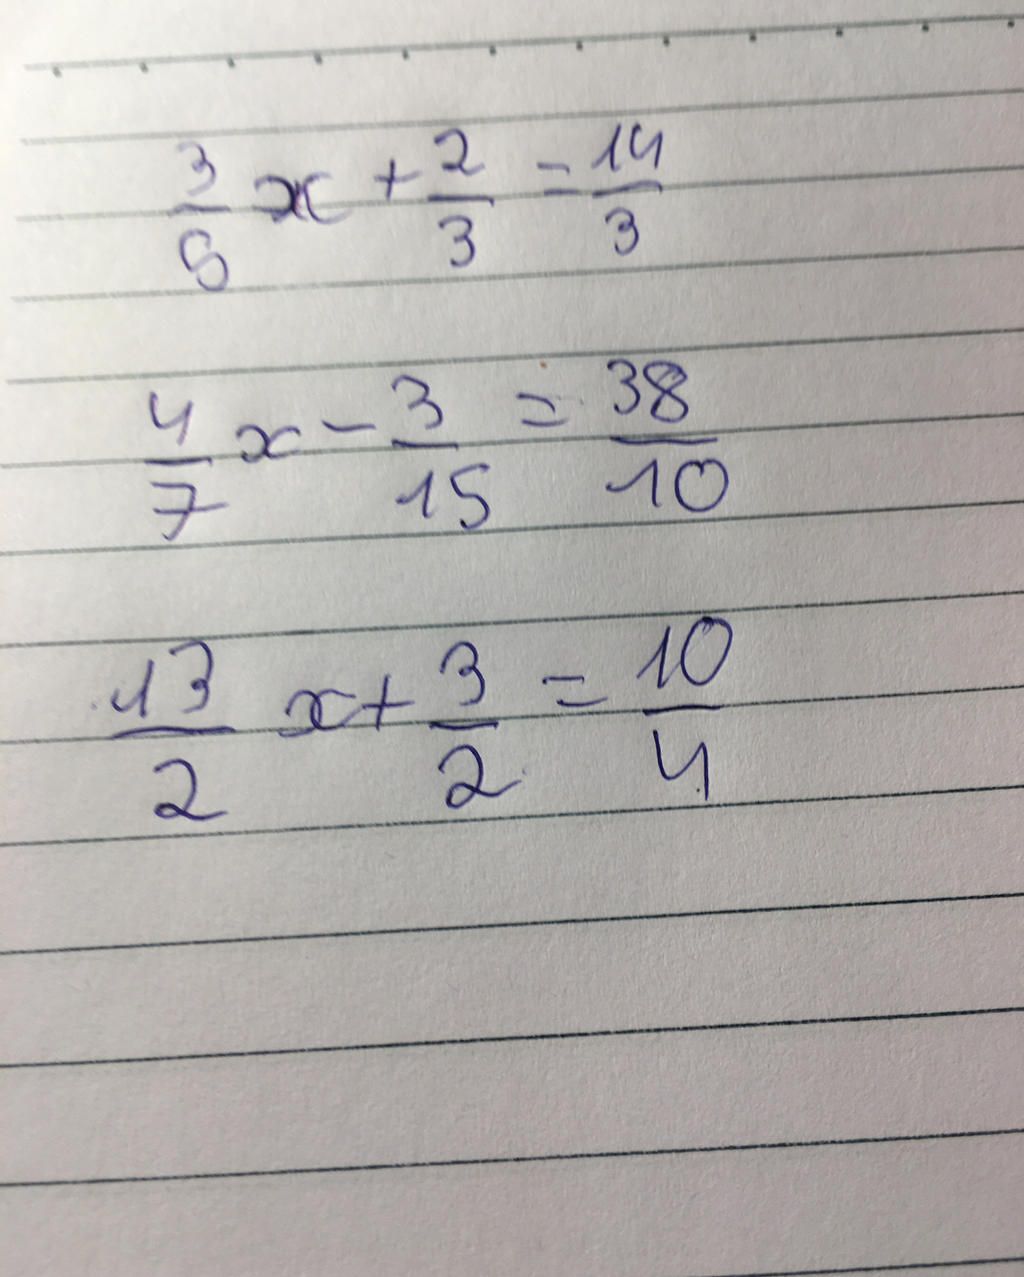 3/8 x + 2/3 = 14/3
4/7 x - 3/15 = 38/10
13/2 x + 3/2 = 10/4